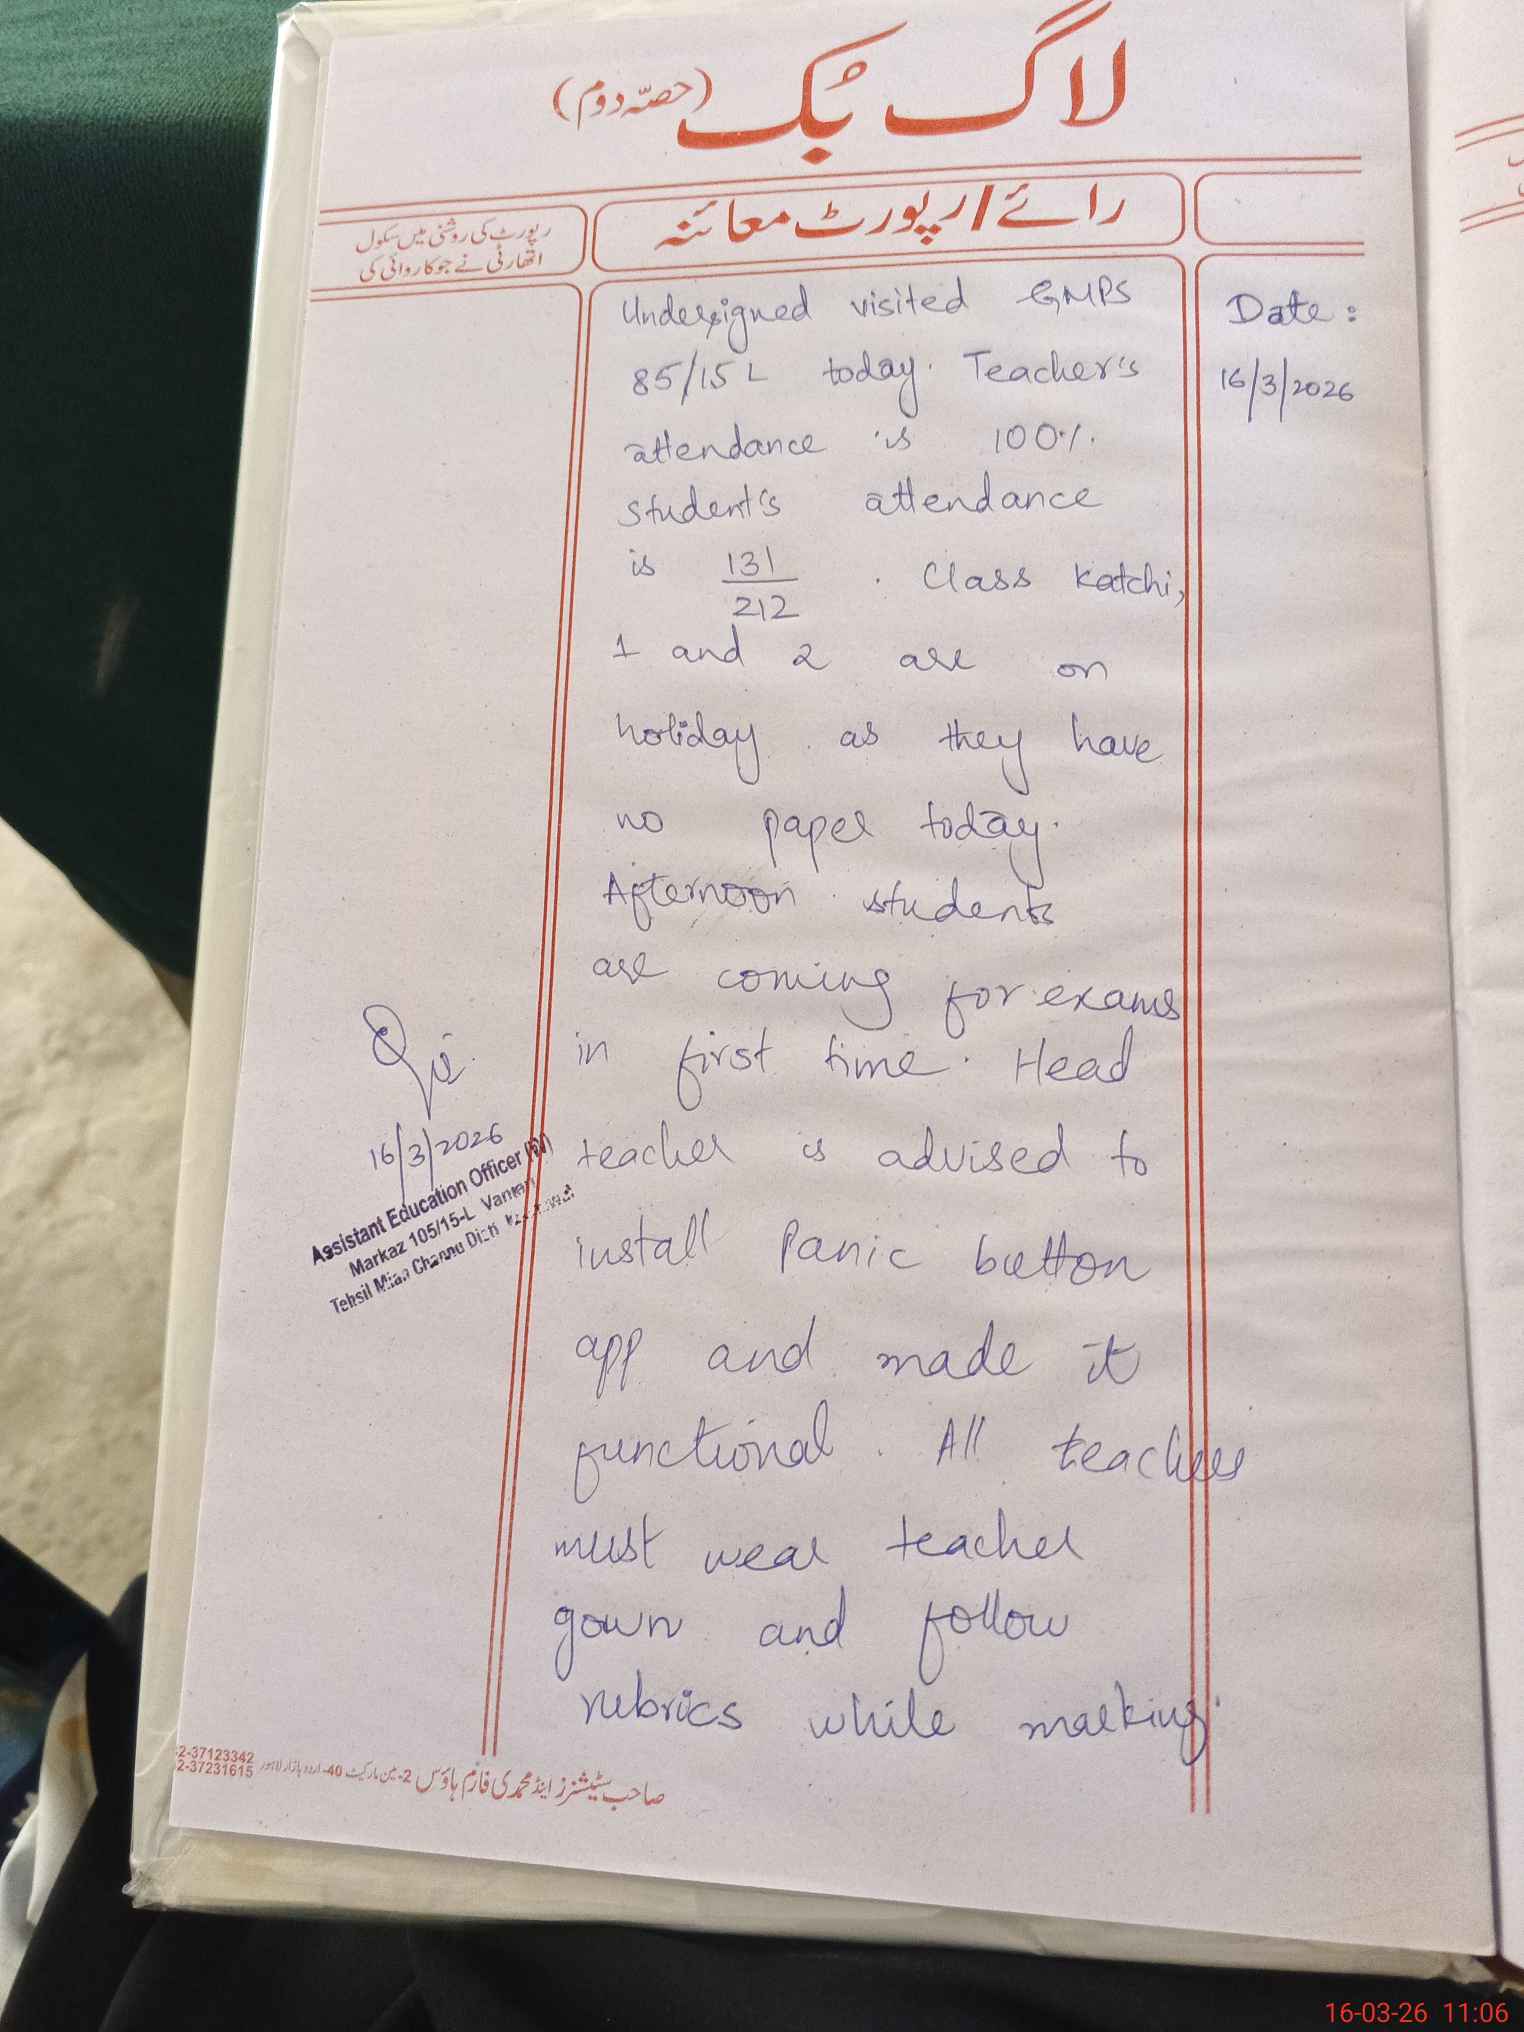 لاگ بُک (حصّہ دوم)
رائے/رپورٹ معائنہ
رپورٹ کی روشنی میں سکول
اتھارٹی نے جو کاروائی کی
Date :
16/3/2026
Undersigned visited GMPS
85/15 L today. Teacher's
attendance is 100%.
student's attendance
is 131/212 . Class Katchi,
1 and 2 are on
holiday as they have
no paper today.
Afternoon students
are coming for exams
in first time. Head
teacher is advised to
install Panic button
app and made it
functional. All teachers
must wear teacher
gown and follow
rubrics while marking.
16/3/2026
Assistant Education Officer (W)
Markaz 105/15-L
Tehsil Mian Channu Distt
صاحب سٹیشنرز اینڈ محمدی فارم ہاؤس 2- مین مارکیٹ 40- اردو بازار لاہور
2-37123342
2-37231615
16-03-26 11:06